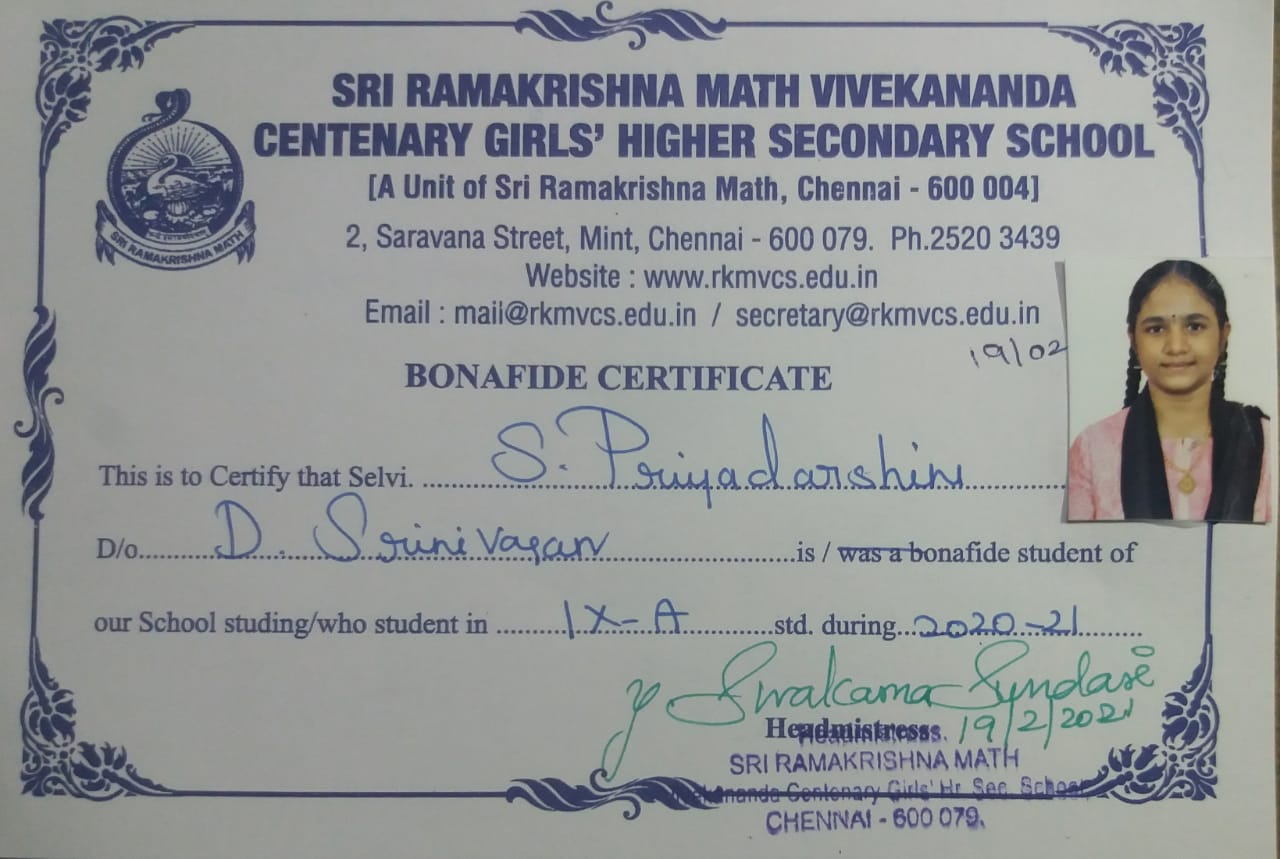 SRI RAMAKRISHNA MATH VIVEKANANDA
CENTENARY GIRLS' HIGHER SECONDARY SCHOOL
[A Unit of Sri Ramakrishna Math, Chennai - 600 004]
SRI RAMAKRISHNA MATH
2, Saravana Street, Mint, Chennai - 600 079. Ph.2520 3439
Website : www.rkmvcs.edu.in
Email : mail@rkmvcs.edu.in / secretary@rkmvcs.edu.in
19/02
BONAFIDE CERTIFICATE
This is to Certify that Selvi. S. Priyadarshini
D/o. D. Srinivasan is / was a bonafide student of
our School studing/who student in IX-A std. during 2020-21
Y Sivakama Sundari
Headmistress 19/2/2021
Headmistress.
SRI RAMAKRISHNA MATH
Vivekananda Centenary Girls' Hr. Sec. School,
CHENNAI - 600 079.